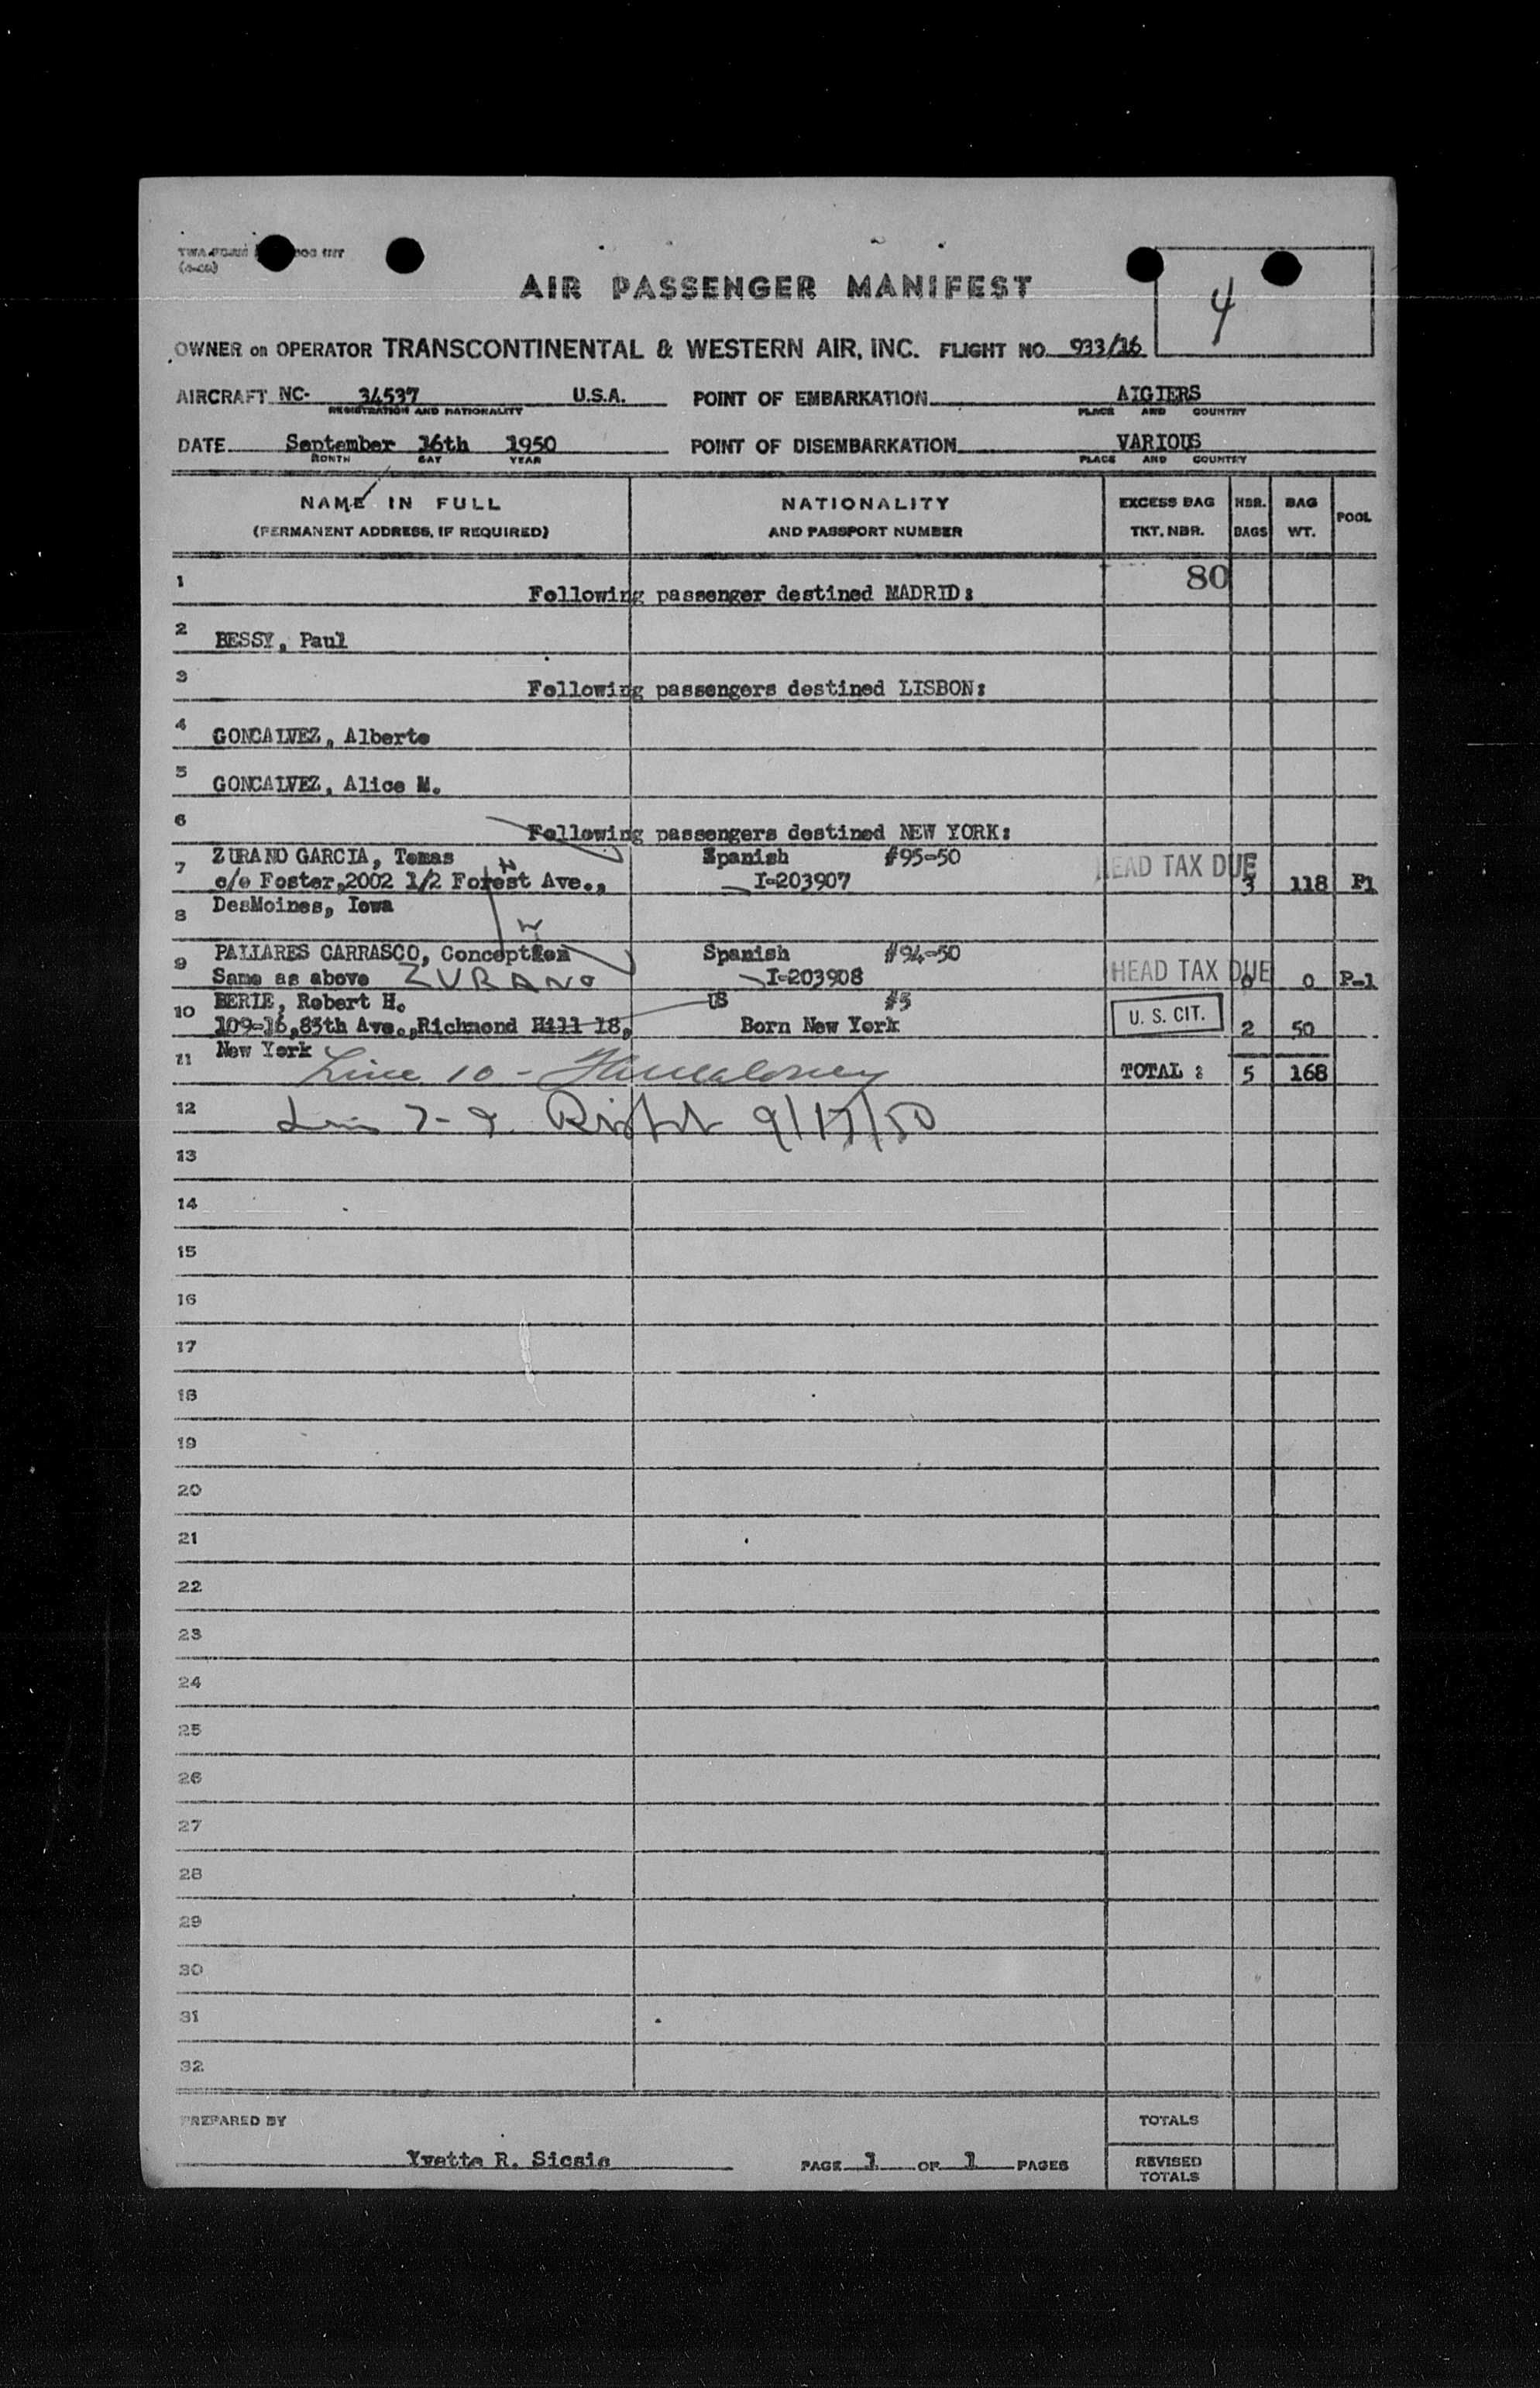 (4-50)
AIR PASSENGER MANIFEST
4
OWNER OR OPERATOR TRANSCONTINENTAL & WESTERN AIR, INC. FLIGHT NO. 933/16
AIRCRAFT NC- 34537 U.S.A. POINT OF EMBARKATION AIGIERS
REGISTRATION AND NATIONALITY PLACE AND COUNTRY
DATE September 16th 1950 POINT OF DISEMBARKATION VARIOUS
MONTH DAY YEAR PLACE AND COUNTRY
NAME IN FULL NATIONALITY EXCESS BAG NBR. BAG POOL
(PERMANENT ADDRESS, IF REQUIRED) AND PASSPORT NUMBER TKT. NBR. BAGS WT.
1 Following passenger destined MADRID: 80
2 BESSY, Paul
3 Following passengers destined LISBON:
4 GONCALVEZ, Alberto
5 GONCALVEZ, Alice M.
6 Following passengers destined NEW YORK:
7 ZURANO GARCIA, Tomas Spanish #95-50 HEAD TAX DUE
c/o Foster,2002 1/2 Forest Ave., I-203907 3 118 P1
8 DesMoines, Iowa
9 PALLARES CARRASCO, Conception Spanish #94-50 HEAD TAX DUE
Same as above ZURANO I-203908 0 0 P-1
10 BERIE, Robert H. US #5 U. S. CIT.
109-16,85th Ave.,Richmond Hill 18, Born New York 2 50
11 New York Line 10 - TOTAL : 5 168
12 7-9 9/17/50
13
14
15
16
17
18
19
20
21
22
23
24
25
26
27
28
29
30
31
32
PREPARED BY TOTALS
Yvette R. Sicsic PAGE 1 OF 1 PAGES REVISED TOTALS